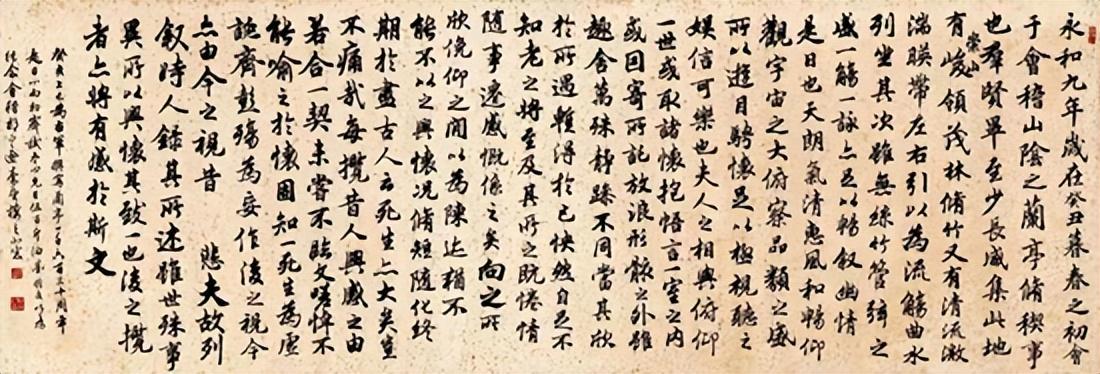 永和九年歲在癸丑暮春之初會
于會稽山陰之蘭亭脩稧事
也羣賢畢至少長咸集此地
有崇山峻領茂林脩竹又有清流激
湍暎帶左右引以為流觴曲水
列坐其次雖無絲竹管弦之
盛一觴一詠亦足以暢叙幽情
是日也天朗氣清惠風和暢仰
觀宇宙之大俯察品類之盛
所以遊目騁懷足以極視聽之
娛信可樂也夫人之相與俯仰
一世或取諸懷抱悟言一室之內
或因寄所託放浪形骸之外雖
趣舍萬殊靜躁不同當其欣
於所遇暫得於己快然自足不
知老之將至及其所之既惓情
隨事遷感慨係之矣向之所
欣俛仰之閒以為陳迹猶不
能不以之興懷況脩短隨化終
期於盡古人云死生亦大矣豈
不痛哉每攬昔人興感之由
若合一契未嘗不臨文嗟悼不
能喻之於懷固知一死生為虛
誕齊彭殤為妄作後之視今
亦由今之視昔 悲夫故列
叙時人錄其所述雖世殊事
異所以興懷其致一也後之攬
者亦將有感於斯文
癸亥上巳為右軍撰寫蘭亭一千六百三十周年